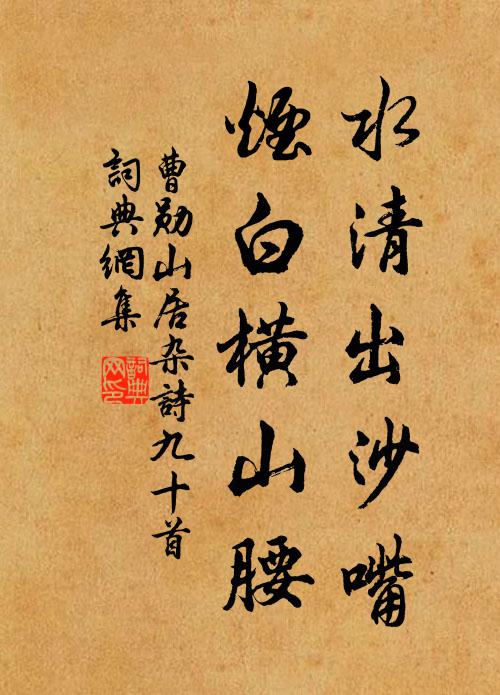 水清出沙嘴
煙白橫山腰
曹勛山居杂詩九十首
詞典網集
詞典网印